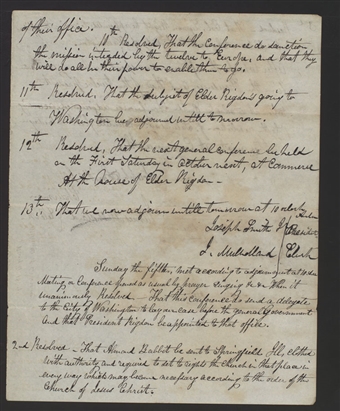 of their office.
10th Resolved, That the conference do sanction
the mission intended by the twelve to Europe, and that they
will do all in their power to enable them to go.
11th Resolved. That the subject of Elder Rigdon's going to
Washington be adjourned untill tomorrow.
12th Resolved, That the next general conference be held
on the First Saturday in October next, at Commerce
At the house of Elder Rigdon —
13th. That we now adjourn untill tomorrow at 10 o'clock
Joseph Smith Jr President
J. Mulholland Clerk
Sunday the fifth, met according to adjournment at 10 A.M.
Conference opened as usual by prayer singing &c &c When it
unanimously Resolved — That this conference do send a delegate
to the City of Washington to lay our case before the general Government
And that President Rigdon be appointed to that office.
2nd Resolved — That Almond Babbit be sent to Springfield Ill, clothed
with authority and required to set to rights the church in that place in
every way which may become necessary according to the order of the
Church of Jesus Christ.